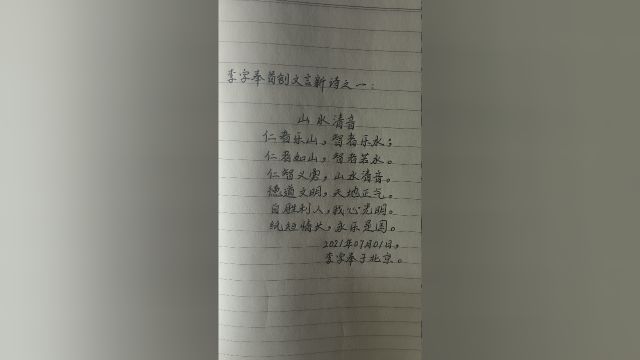 李字奉首创文言新诗之一:
山水清音
仁者乐山,智者乐水;
仁者如山,智者若水。
仁智义容,山水清音。
德道文明,天地正气。
自胜利人,我心光明。
纸短情长,永乐是园。
2021年07月01日,
李字奉于北京。